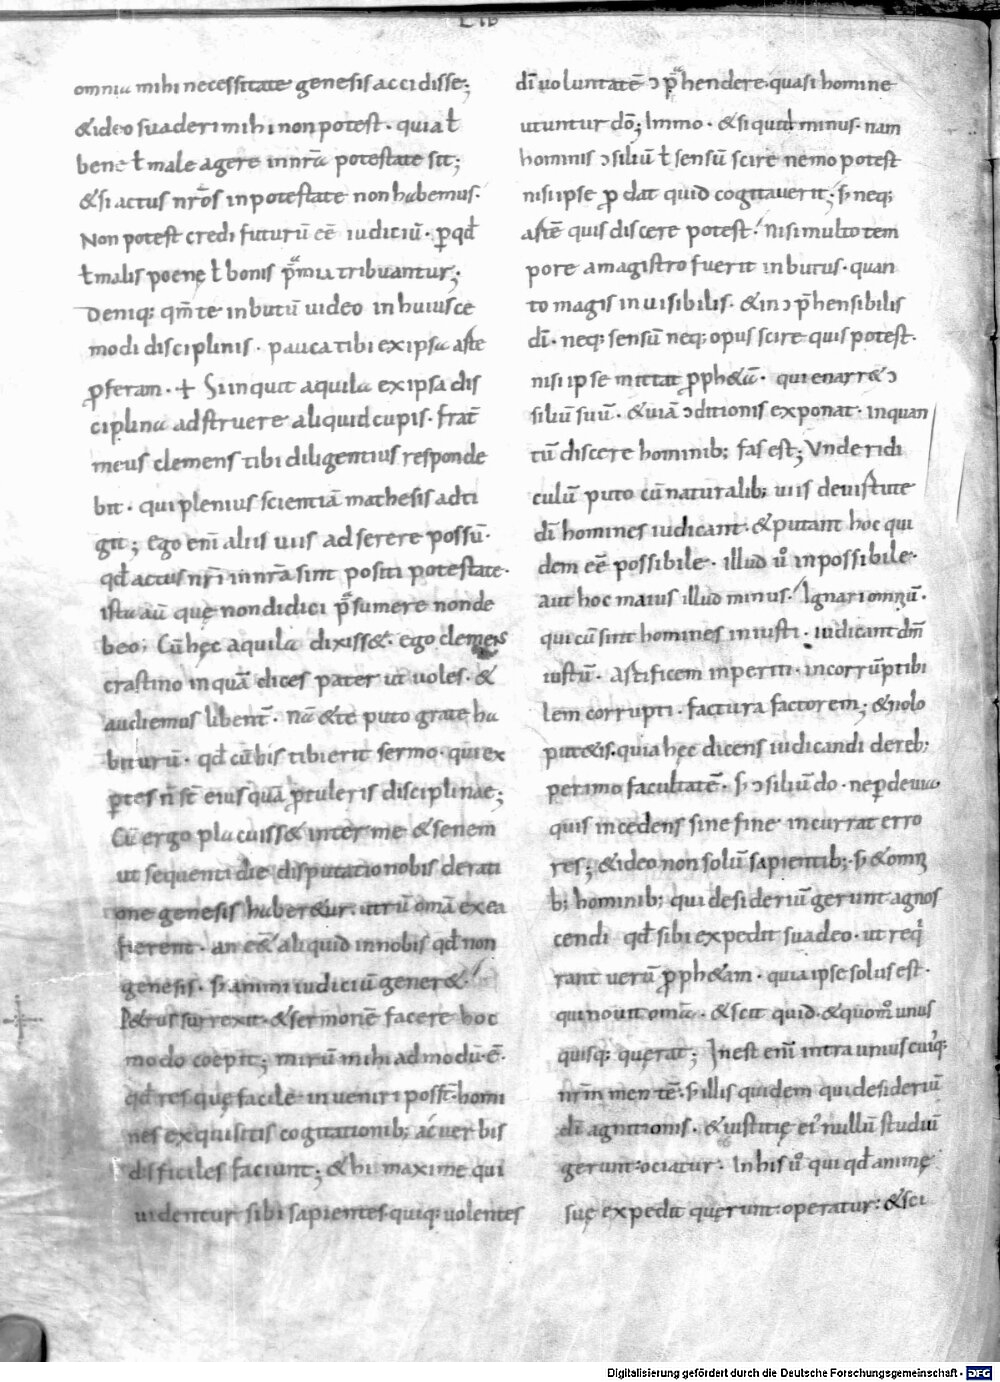 LIB
omnia mihi necessitate genesis accidisse;
&ideo suaderi mihi non potest· quia ł
bene ł male agere in nr̄a potestate sit;
&si actus nr̄os in potestate non habemus·
Non potest credi futurū eē iudiciū· ꝑqđ
ł malis poenę ł bonis p̄mia tribuantur;
Deniq; qm̄ te inbutū uideo in huiusce
modi disciplinis· pauca tibi ex ipsa aīte
ꝓferam· + Si inquit aquila ex ipsa dis
ciplina adstruere aliquid cupis· frat̄
meus clemens tibi diligentius responde
bit· qui plenius scientiā mathesis adti
git; ego eni̅ aliis uiis adserere possū·
qđ actus nr̄i in nr̄a sint positi potestate·
ista aū quę non didici p̄sumere non de
beo; Cū hęc aquila dixiss&· ego clemens
crastino inquā dices pater ut uoles· &
audiemus libent̄· Nā &te puto grate ha
biturū· qđ cū his tibi erit sermo· qui ex
ꝑtes n̄ st̄ eius quā ꝓtuleris disciplinae;
Cū ergo placuiss& inter me &senem
ut sequenti die disputatio nobis de rati
one genesis haber&ur· utrū om̄a ex ea
fierent· an eē& aliquid in nobis qđ non
genesis· s; animi iudiciū gener&·
P&rus surrexit· &sermonē facere hoc
modo coepit; mirū mihi admodū·ē·
qđ res quę facile inueniri posst̄· homi
nes exquisitis cogitationib; ac uerbis
difficiles faciunt; &hi maxime qui
uidentur sibi sapientes· quiq; uolentes
di̅ uoluntatē ↄp̄hendere· quasi homine
utuntur dō; Immo· &si quid minus· nam
hominis ↄsiliū ł sensū scire nemo potest
nisi ipse ꝓdat quid cogitauerit; s; neq;
artē quis discere potest· Nisi multo tem
pore a magistro fuerit inbutus· quan
to magis inuisibilis· &inↄp̄hensibilis
di̅· neq; sensū neq; opus scire quis potest·
nisi ipse mittat ꝓph&ā· qui enarr& ↄ
siliū suū· &uiā ↄditionis exponat· inquan
tū discere hominib; fas est; Unde ridi
culū puto cū naturalib; uiis de uirtute
di̅ homines iudicant· &putant hoc qui
dem eē possibile· illud ů inpossibile·
aut hoc maius illud minus· Ignari omniū·
qui cū sint homines iniusti· iudicant dm̄
iustū· Artificem inperiti· incorruptibi
lem corrupti· factura factorem; &nolo
put&is· quia hęc dicens iudicandi de reb;
perimo facultatē· s; ↄsiliū do· ne ꝑ deuia
quis incedens sine fine incurrat erro
res; &ideo non solū sapientib;· s; &omni
b; hominib; qui desideriū gerunt agnos
cendi qđ sibi expedit suadeo· ut req̇
rant uerū ꝓph&am· quia ipse solus est·
qui nouit om̄a· &scit quid· &quom̊ unus
quisq; quęrat; Inest eni̅ intra uniuscuiꝰq;
nr̄m mentē· s; illis quidem qui desideriū
di̅ agnitionis· &iustitię eiꝰ nullū studiū
gerunt· ociatur· In his ů qui qđ animę
suę expedit quęrunt· operatur· &sci